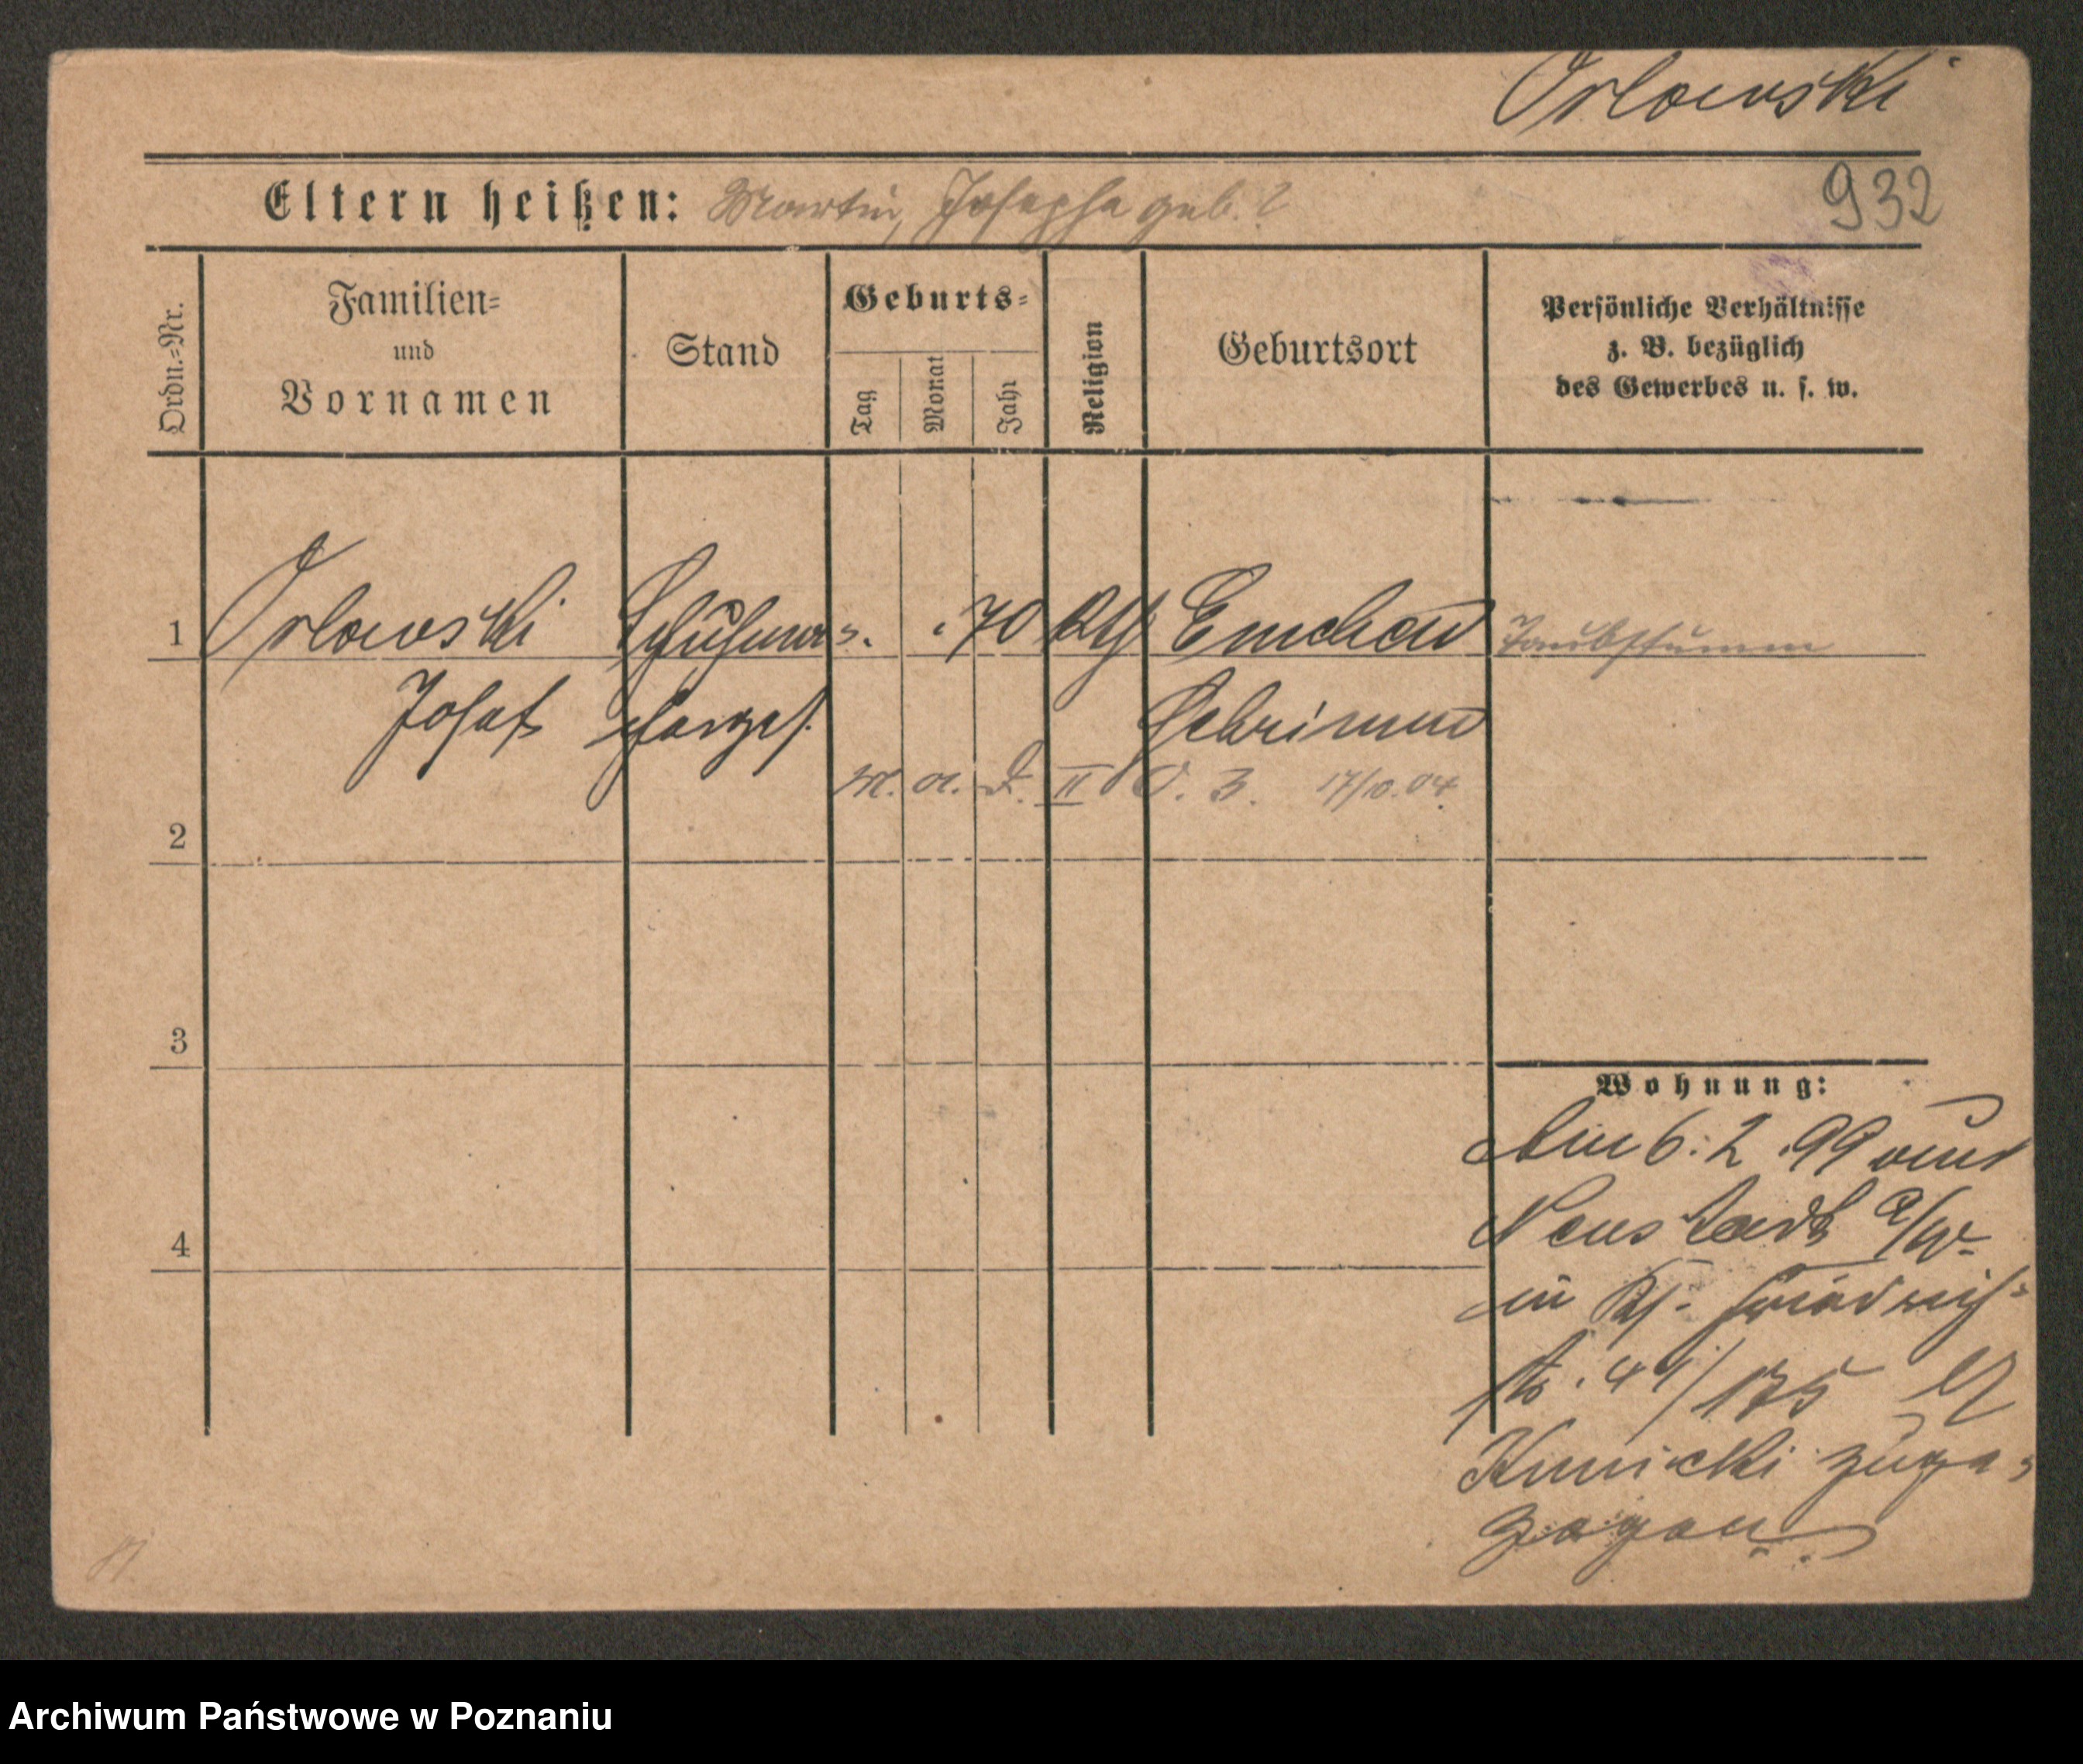 Orlowski
Eltern heißen: Martin, Josepha geb. ?
932
Ordn.=Nr.
Familien=
und
Vornamen
Stand
Geburts=
Tag
Monat
Jahr
Religion
Geburtsort
Persönliche Verhältnisse
z. B. bezüglich
des Gewerbes u. s. w.
1 Orlowski Schuhma= . 70 Kth Emchen Taubstumm
Josef chergs.
M. A. II O. 3. 17/10.04.
2
3
4
Wohnung:
Am 6. 2. 99 von
Neustadt a/W.
in
str. 44/175
Kmicki zuge=
zogen.
Archiwum Państwowe w Poznaniu